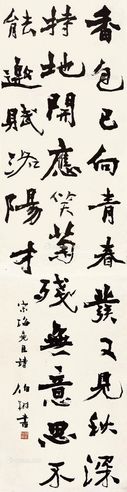 香色已向青春發又見秋深
特地開應笑菊殘無意思不
能邀賦沿陽才
宗海先生詩 伯翔書